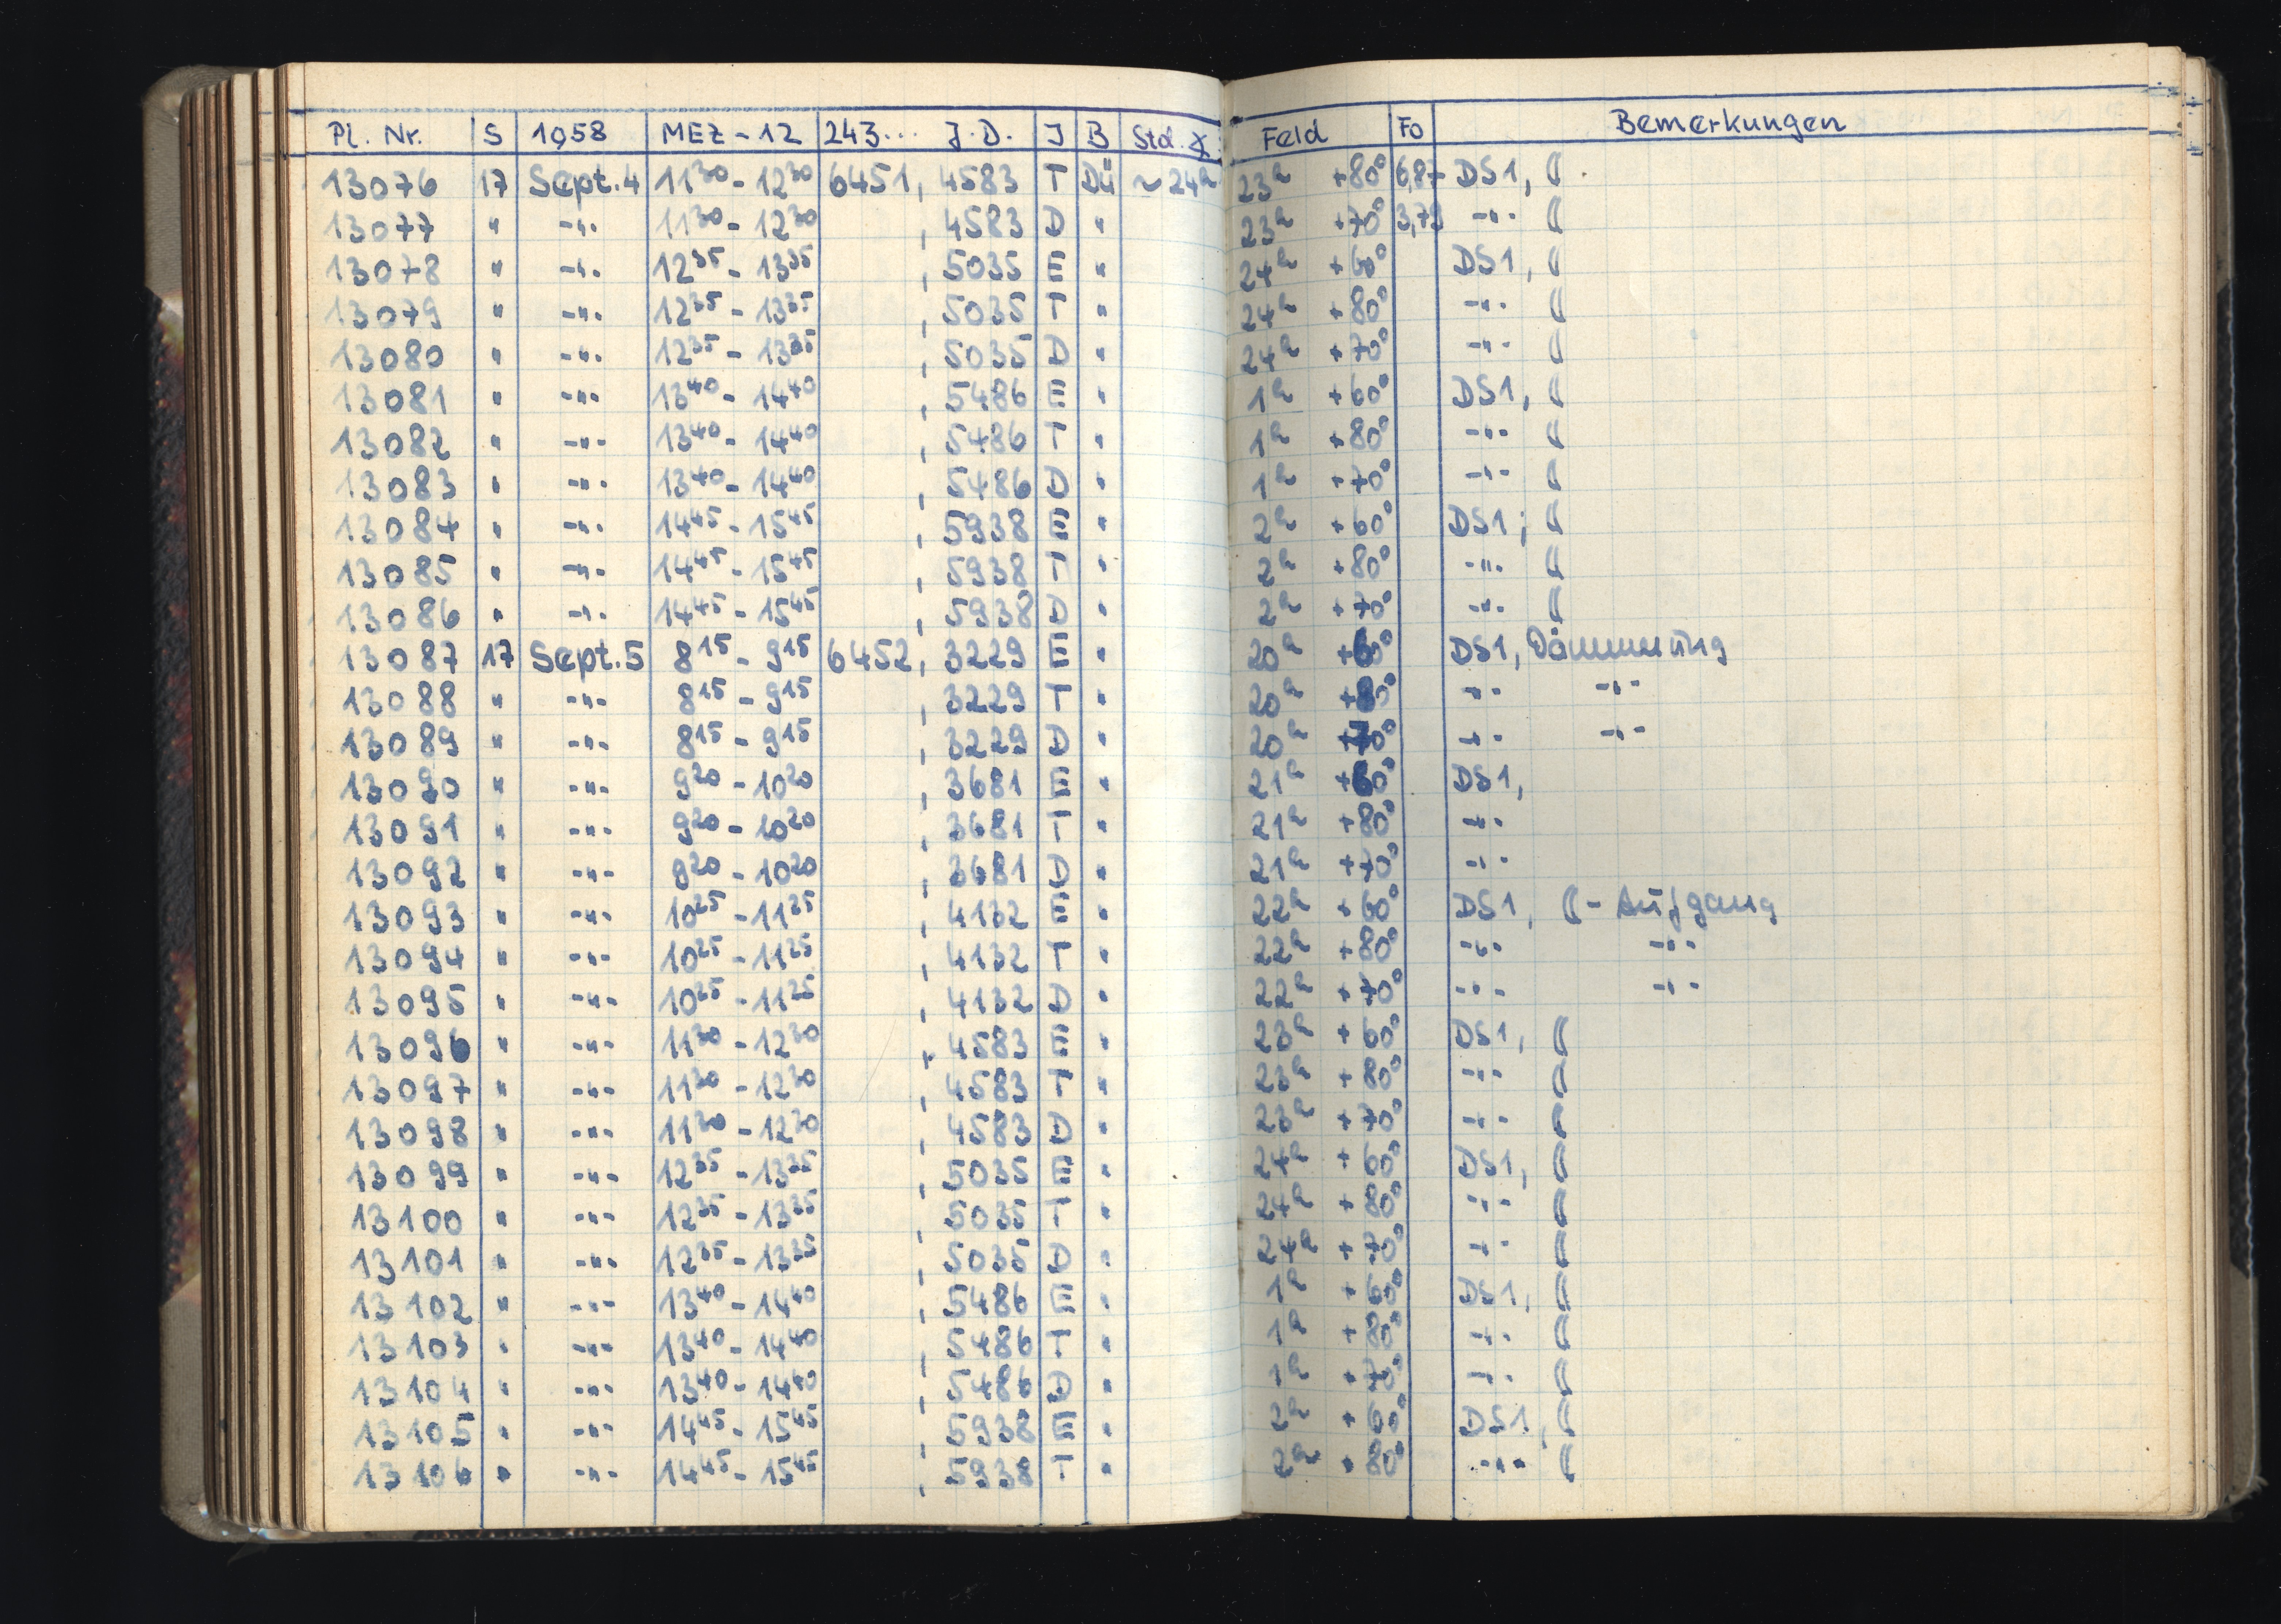 Pl. Nr. S 1958 MEZ - 12 243... J.D. J B Std. ∢ Feld Fo Bemerkungen
13076 17 Sept. 4 11³⁰ - 12³⁰ 6451, 4583 T Dü ~ 24ʰ 23ʰ +80° 6,87 DS1, ☾
13077 " -"- 11³⁰ - 12³⁰ , 4583 D " 23ʰ +70° 3,79 -"- ☾
13078 " -"- 12³⁵ - 13³⁵ , 5035 E " 24ʰ +60° DS1, ☾
13079 " -"- 12³⁵ - 13³⁵ , 5035 T " 24ʰ +80° -"- ☾
13080 " -"- 12³⁵ - 13³⁵ , 5035 D " 24ʰ +70° -"- ☾
13081 " -"- 13⁴⁰ - 14⁴⁰ , 5486 E " 1ʰ +60° DS1, ☾
13082 " -"- 13⁴⁰ - 14⁴⁰ , 5486 T " 1ʰ +80° -"- ☾
13083 " -"- 13⁴⁰ - 14⁴⁰ , 5486 D " 1ʰ +70° -"- ☾
13084 " -"- 14⁴⁵ - 15⁴⁵ , 5938 E " 2ʰ +60° DS1, ☾
13085 " -"- 14⁴⁵ - 15⁴⁵ , 5938 T " 2ʰ +80° -"- ☾
13086 " -"- 14⁴⁵ - 15⁴⁵ , 5938 D " 2ʰ +70° -"- ☾
13087 17 Sept. 5 8¹⁵ - 9¹⁵ 6452, 3229 E " 20ʰ +60° DS1, Dämmerung
13088 " -"- 8¹⁵ - 9¹⁵ , 3229 T " 20ʰ +80° -"- -"-
13089 " -"- 8¹⁵ - 9¹⁵ , 3229 D " 20ʰ +70° -"- -"-
13090 " -"- 9²⁰ - 10²⁰ , 3681 E " 21ʰ +60° DS1,
13091 " -"- 9²⁰ - 10²⁰ , 3681 T " 21ʰ +80° -"-
13092 " -"- 9²⁰ - 10²⁰ , 3681 D " 21ʰ +70° -"-
13093 " -"- 10²⁵ - 11²⁵ , 4132 E " 22ʰ +60° DS1, ☾ - Aufgang
13094 " -"- 10²⁵ - 11²⁵ , 4132 T " 22ʰ +80° -"- -"-
13095 " -"- 10²⁵ - 11²⁵ , 4132 D " 22ʰ +70° -"- -"-
13096 " -"- 11³⁰ - 12³⁰ , 4583 E " 23ʰ +60° DS1, ☾
13097 " -"- 11³⁰ - 12³⁰ , 4583 T " 23ʰ +80° -"- ☾
13098 " -"- 11³⁰ - 12³⁰ , 4583 D " 23ʰ +70° -"- ☾
13099 " -"- 12³⁵ - 13³⁵ , 5035 E " 24ʰ +60° DS1, ☾
13100 " -"- 12³⁵ - 13³⁵ , 5035 T " 24ʰ +80° -"- ☾
13101 " -"- 12³⁵ - 13³⁵ , 5035 D " 24ʰ +70° -"- ☾
13102 " -"- 13⁴⁰ - 14⁴⁰ , 5486 E " 1ʰ +60° DS1, ☾
13103 " -"- 13⁴⁰ - 14⁴⁰ , 5486 T " 1ʰ +80° -"- ☾
13104 " -"- 13⁴⁰ - 14⁴⁰ , 5486 D " 1ʰ +70° -"- ☾
13105 " -"- 14⁴⁵ - 15⁴⁵ , 5938 E " 2ʰ +60° DS1, ☾
13106 " -"- 14⁴⁵ - 15⁴⁵ , 5938 T " 2ʰ +80° -"- ☾